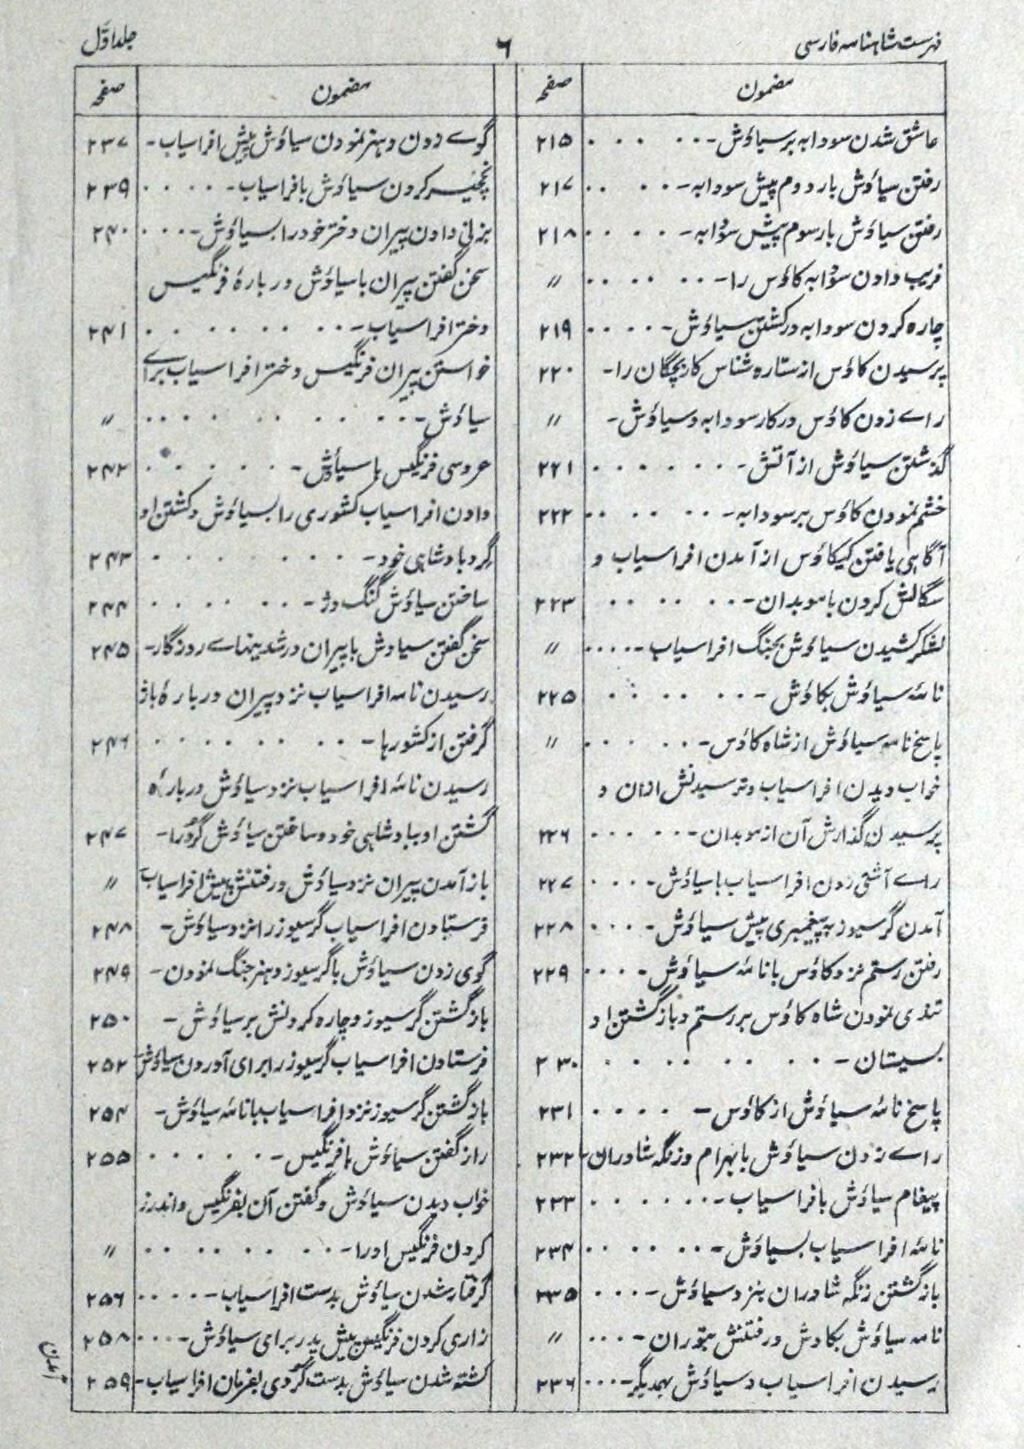 فهرست شاهنامه فارسی
۶
جلد اوّل
مضمون
صفحہ
عاشق شدن سودابه بر سیاؤش - ۲۱۵
رفتن سیاؤش بار دوم پیش سودابه - ۲۱۷
رفتن سیاؤش بار سوم پیش سؤدابه - ۲۱۸
فریب دادن سؤدابه کاؤس را - 〃
چاره کردن سودابه در کشتن سیاؤش - ۲۱۹
پرسیدن کاؤس از ستاره شناس کار بچگان را - ۲۲۰
راے زدن کاؤس در کار سودابه و سیاؤش - 〃
گذشتن سیاؤش از آتش - ۲۲۱
خشم نمودن کاؤس بر سودابه - ۲۲۲
آگاهی یافتن کیکاؤس از آمدن افراسیاب و
سگالش کردن با موبدان - ۲۲۳
لشکر کشیدن سیاؤش بجنگ افراسیاب - 〃
نامۂ سیاؤش بکاؤس - ۲۲۵
پاسخ نامه سیاؤش از شاه کاؤس - 〃
خواب دیدن افراسیاب و ترسیدنش ازان و
پرسیدن گذارش آن از موبدان - ۲۲۶
راے آشتی زدن افراسیاب با سیاؤش - ۲۲۷
آمدن گرسیوز به پیغمبری پیش سیاؤش - ۲۲۸
رفتن رستم نزد کاؤس با نامۂ سیاؤش - ۲۲۹
تندی نمودن شاه کاؤس بر رستم و بازگشتن او
بسیستان - ۲۳۰
پاسخ نامۂ سیاؤش از کاؤس - ۲۳۱
راے زدن سیاؤش با بهرام و زنگه شاوران - ۲۳۲
پیغام سیاؤش بافراسیاب - ۲۳۳
نامۂ افراسیاب بسیاؤش - ۲۳۴
بازگشتن زنگه شاوران بنزد سیاؤش - ۲۳۵
نامه سیاؤش بکاؤس و رفتنش بتوران - 〃
رسیدن افراسیاب و سیاؤش بهمدیگر - ۲۳۶
مضمون
صفحہ
گوے زدن و هنر نمودن سیاؤش پیش افراسیاب - ۲۳۷
نخچیر کردن سیاؤش با فراسیاب - ۲۳۹
بزنی دادن پیران دختر خود را بسیاؤش - ۲۴۰
سخن گفتن پیران با سیاؤش در بارۂ فرنگیس
دختر افراسیاب - ۲۴۱
خواستن پیران فرنگیس دختر افراسیاب براے
سیاؤش - 〃
عروسی فرنگیس با سیاؤش - ۲۴۲
دادن افراسیاب کشوری را بسیاؤش و گشتن او
گرد بادشاهی خود - ۲۴۳
ساختن سیاؤش گنگ دژ - ۲۴۴
سخن گفتن سیاوش با پیران در شدینهاے روزگار - ۲۴۵
رسیدن نامه افراسیاب نزد پیران دربارۀ باژ
گرفتن از کشورها - ۲۴۶
رسیدن نامۂ افراسیاب نزد سیاؤش دربارۀ
گشتن او ببادشاهی خود و ساختن سیاؤش گرد را - ۲۴۷
باز آمدن پیران نزد سیاؤش و رفتنش پیش افراسیاب 〃
فرستادن افراسیاب گرسیوز را نزد سیاؤش - ۲۴۸
گوی زدن سیاؤش با گرسیوز و هنر جنگ نمودن - ۲۴۹
بازگشتن گرسیوز و چاره کردنش بر سیاؤش - ۲۵۰
فرستادن افراسیاب گرسیوز را برای آوردن سیاؤش ۲۵۲
بازگشتن گرسیوز نزد افراسیاب با نامۂ سیاؤش - ۲۵۴
راز گفتن سیاؤش با فرنگیس - ۲۵۵
خواب دیدن سیاؤش و گفتن آن بفرنگیس و اندرز
کردن فرنگیس او را - 〃
گرفتار شدن سیاؤش بدست افراسیاب - ۲۵۶
زاری کردن فرنگیس پیش پدر برای سیاؤش - ۲۵۸
کشته شدن سیاؤش بدست گروی بفرمان افراسیاب - ۲۵۹
آمدن